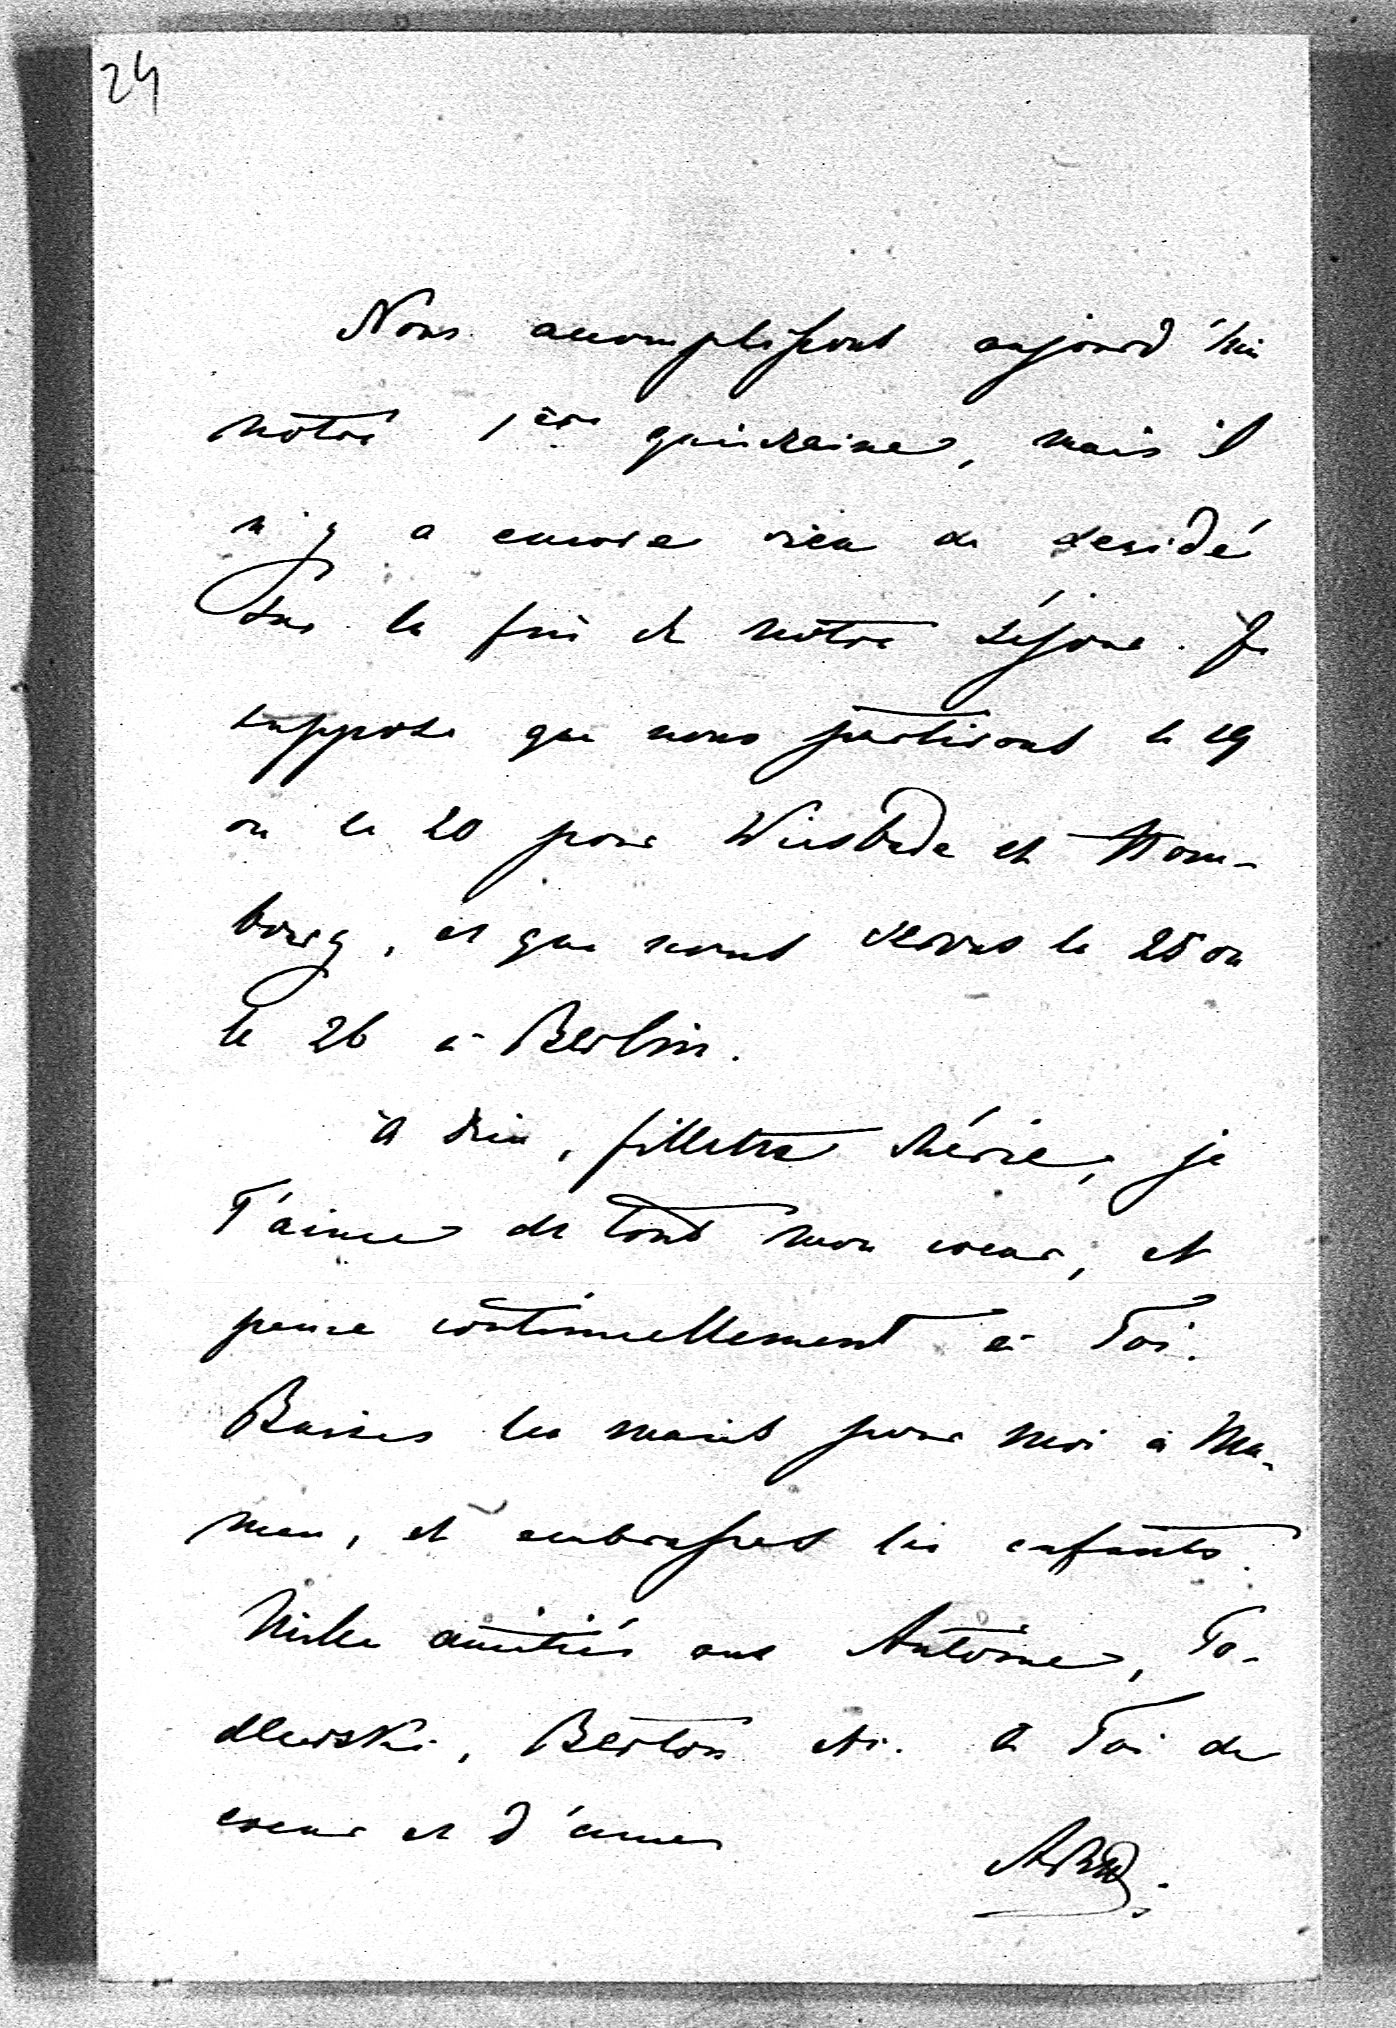 24
Nous accomplissons aujourd'hui
notre 1ère quinzaine, mais il
n'y a encore rien de decidé
sur la fin de notre séjour. Je
suppose que nous partirons le 19
ou le 20 pour Wiesbade et Hom-
bourg, et que nous serons le 25 ou
le 26 à Berlin.
A dieu, fillette chérie, je
T'aime de tout mon coeur, et
pense continuellement à Toi.
Baises les mains pour moi à Ma-
man, et embrasses les enfants.
Milles amitiés aux Antoine, Po-
dlewski, Berton etc. A Toi de
coeur et d'âme